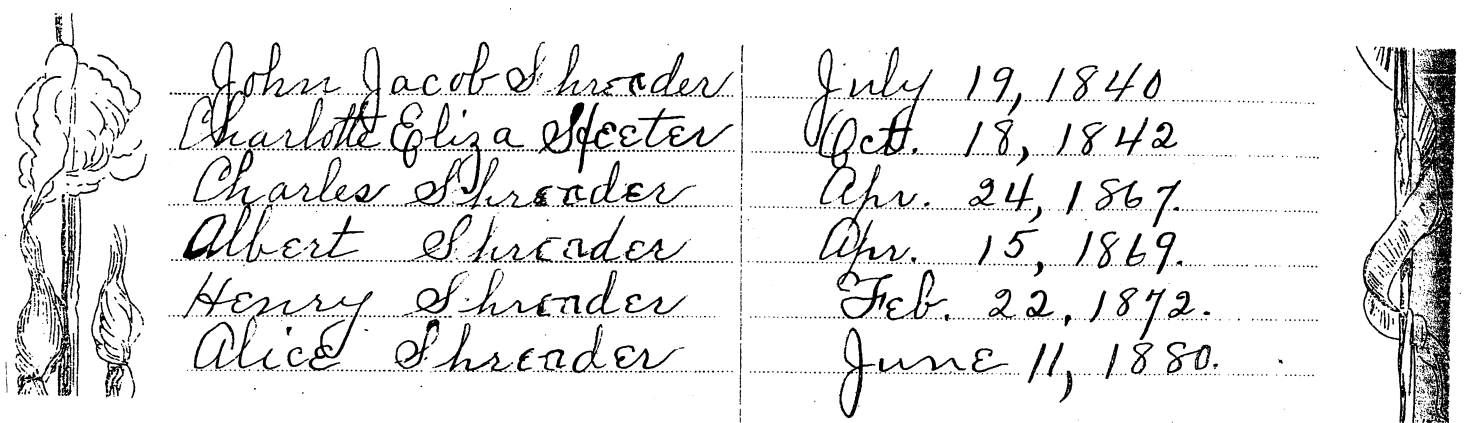 John Jacob Shreader July 19, 1840
Charlotte Eliza Skeeter Oct. 18, 1842
Charles Shreader Apr. 24, 1867.
Albert Shreader Apr. 15, 1869.
Henry Shreader Feb. 22, 1872.
Alice Shreader June 11, 1880.